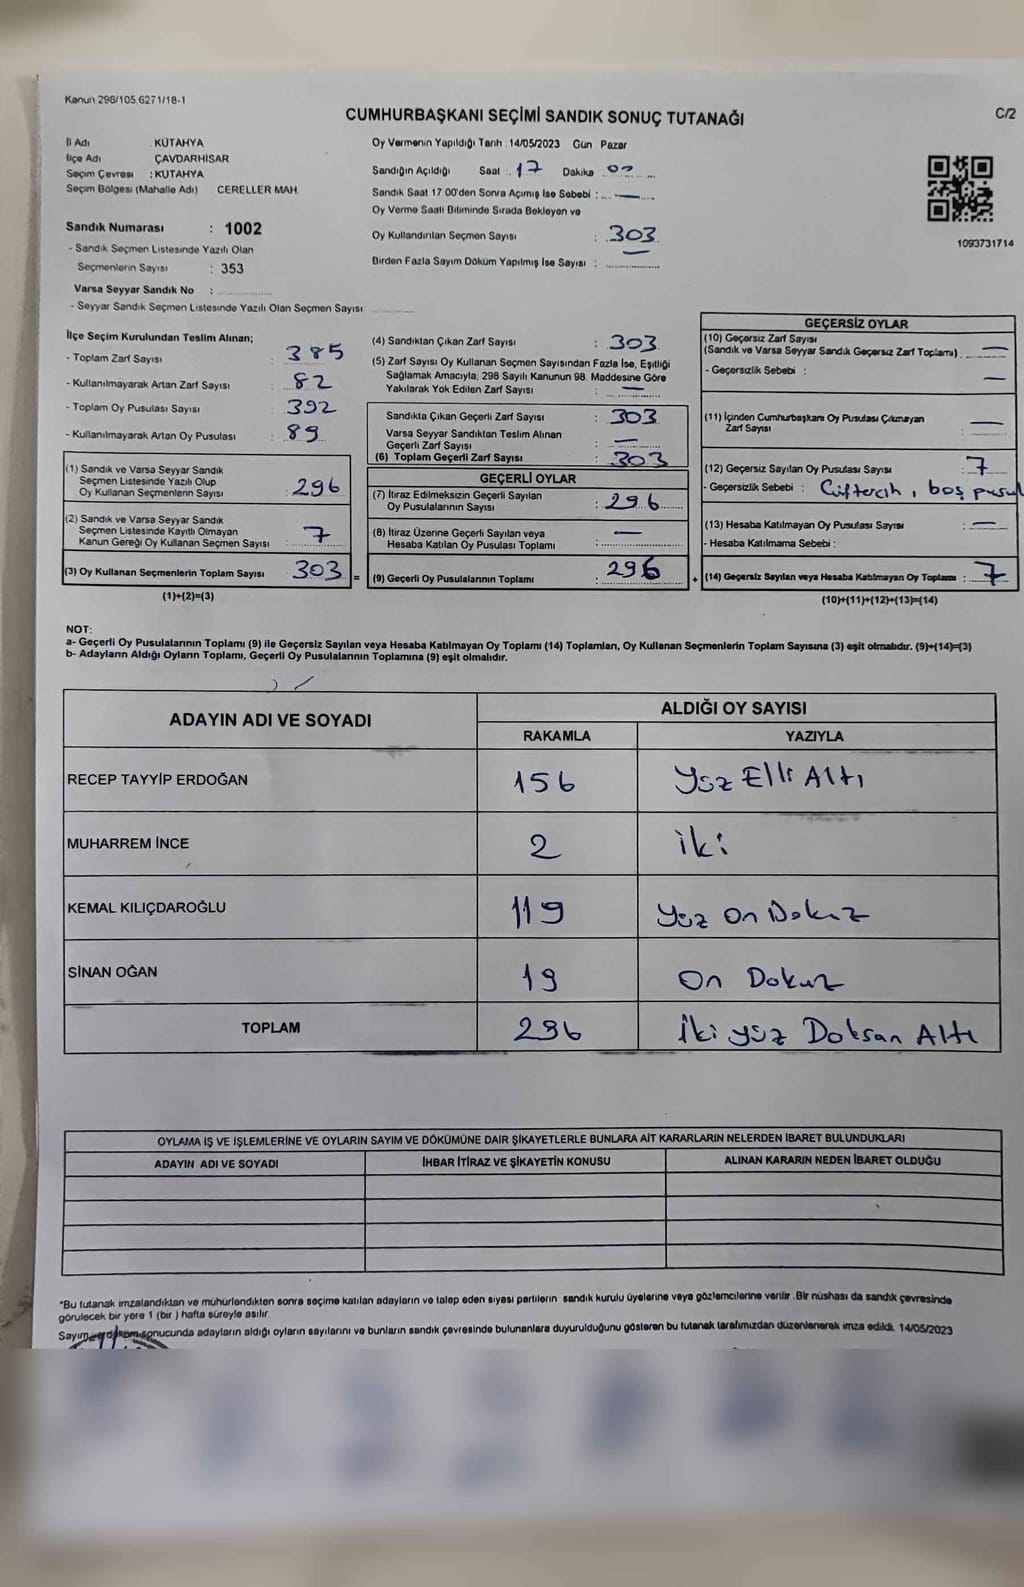 Kanun 298/105.6271/18-1
C/2
CUMHURBAŞKANI SEÇİMİ SANDIK SONUÇ TUTANAĞI
İl Adı : KÜTAHYA
İlçe Adı : ÇAVDARHİSAR
Seçim Çevresi : KUTAHYA
Seçim Bölgesi (Mahalle Adı) : CERELLER MAH.
Oy Vermenin Yapıldığı Tarih : 14/05/2023 Gün Pazar
Sandığın Açıldığı Saat : 17 Dakika
Sandık Saat 17.00'den Sonra Açımış İse Sebebi : —
Oy Verme Saati Bitiminde Sırada Bekleyen ve
Oy Kullandırılan Seçmen Sayısı : 303
Birden Fazla Sayım Döküm Yapılmış İse Sayısı : —
1093731714
Sandık Numarası : 1002
- Sandık Seçmen Listesinde Yazılı Olan
Seçmenlerin Sayısı : 353
Varsa Seyyar Sandık No :
- Seyyar Sandık Seçmen Listesinde Yazılı Olan Seçmen Sayısı
İlçe Seçim Kurulundan Teslim Alınan;
- Toplam Zarf Sayısı : 385
- Kullanılmayarak Artan Zarf Sayısı : 82
- Toplam Oy Pusulası Sayısı : 392
- Kullanılmayarak Artan Oy Pusulası : 89
(1) Sandık ve Varsa Seyyar Sandık
Seçmen Listesinde Yazılı Olup
Oy Kullanan Seçmenlerin Sayısı : 296
(2) Sandık ve Varsa Seyyar Sandık
Seçmen Listesinde Kayıtlı Olmayan
Kanun Gereği Oy Kullanan Seçmen Sayısı : 7
(3) Oy Kullanan Seçmenlerin Toplam Sayısı 303 =
(1)+(2)=(3)
(4) Sandıktan Çıkan Zarf Sayısı : 303
(5) Zarf Sayısı Oy Kullanan Seçmen Sayısından Fazla İse, Eşitliği
Sağlamak Amacıyla, 298 Sayılı Kanunun 98. Maddesine Göre
Yakılarak Yok Edilen Zarf Sayısı : —
Sandıkta Çıkan Geçerli Zarf Sayısı : 303
Varsa Seyyar Sandıktan Teslim Alınan
Geçerli Zarf Sayısı : —
(6) Toplam Geçerli Zarf Sayısı : 303
GEÇERLİ OYLAR
(7) İtiraz Edilmeksizin Geçerli Sayılan
Oy Pusulalarının Sayısı : 296
(8) İtiraz Üzerine Geçerli Sayılan veya
Hesaba Katılan Oy Pusulası Toplamı : —
(9) Geçerli Oy Pusulalarının Toplamı : 296 +
GEÇERSİZ OYLAR
(10) Geçersiz Zarf Sayısı
(Sandık ve Varsa Seyyar Sandık Geçersiz Zarf Toplamı) . —
- Geçersizlik Sebebi : —
(11) İçinden Cumhurbaşkanı Oy Pusulası Çıkmayan
Zarf Sayısı : —
(12) Geçersiz Sayılan Oy Pusulası Sayısı : 7
- Geçersizlik Sebebi : Çiftercih, boş pusul
(13) Hesaba Katılmayan Oy Pusulası Sayısı : —
- Hesaba Katılmama Sebebi :
(14) Geçersiz Sayılan veya Hesaba Katılmayan Oy Toplamı : 7
(10)+(11)+(12)+(13)=(14)
NOT:
a- Geçerli Oy Pusulalarının Toplamı (9) ile Geçersiz Sayılan veya Hesaba Katılmayan Oy Toplamı (14) Toplamları, Oy Kullanan Seçmenlerin Toplam Sayısına (3) eşit olmalıdır. (9)+(14)=(3)
b- Adayların Aldığı Oyların Toplamı, Geçerli Oy Pusulalarının Toplamına (9) eşit olmalıdır.
ADAYIN ADI VE SOYADI
ALDIĞI OY SAYISI
RAKAMLA YAZIYLA
RECEP TAYYİP ERDOĞAN 156 Yüz Elli Altı
MUHARREM İNCE 2 iki
KEMAL KILIÇDAROĞLU 119 Yüz On Dokuz
SİNAN OĞAN 19 On Dokuz
TOPLAM 296 İki yüz Doksan Altı
OYLAMA İŞ VE İŞLEMLERİNE VE OYLARIN SAYIM VE DÖKÜMÜNE DAİR ŞİKAYETLERLE BUNLARA AİT KARARLARIN NELERDEN İBARET BULUNDUKLARI
ADAYIN ADI VE SOYADI İHBAR İTİRAZ VE ŞİKAYETİN KONUSU ALINAN KARARIN NEDEN İBARET OLDUĞU
*Bu tutanak imzalandıktan ve mühürlendikten sonra seçime katılan adayların ve talep eden siyasi partilerin sandık kurulu üyelerine veya gözlemcilerine verilir. Bir nüshası da sandık çevresinde
görülecek bir yere 1 (bir ) hafta süreyle asılır.
Sayım sonucunda adayların aldığı oyların sayılarını ve bunların sandık çevresinde bulunanlara duyurulduğunu gösteren bu tutanak tarafımızdan düzenlenerek imza edildi. 14/05/2023